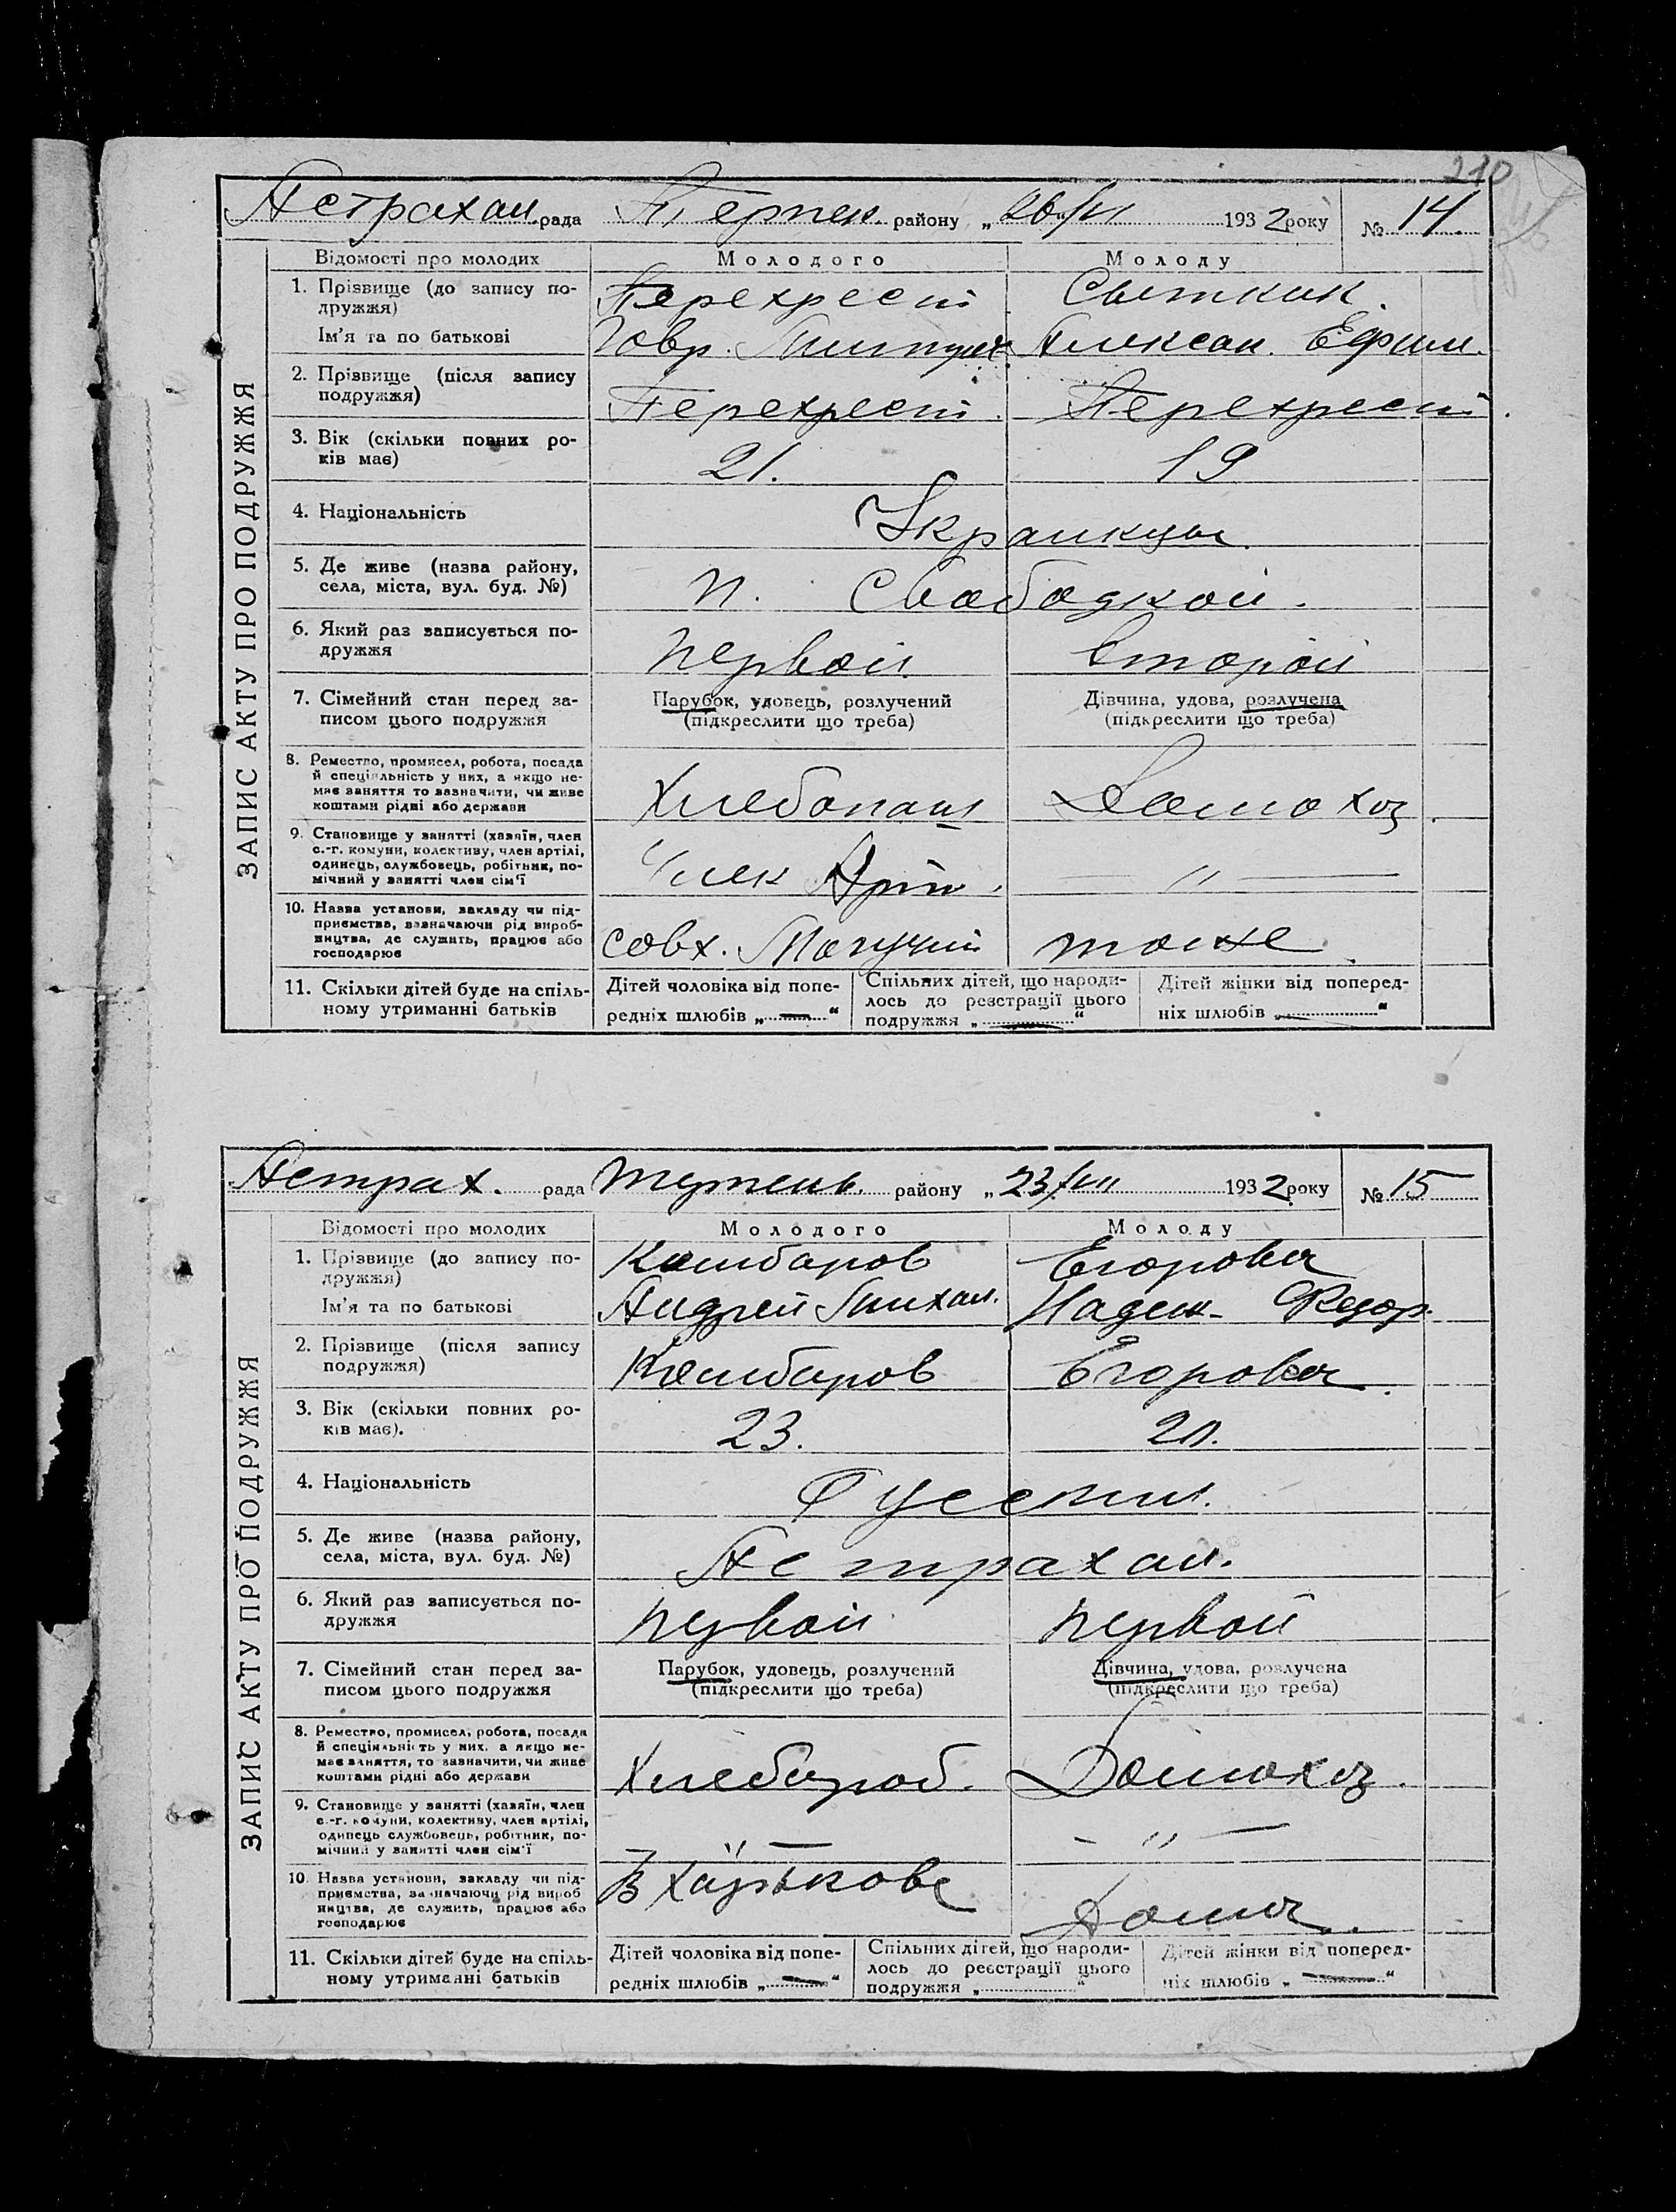 210
Астрахан. рада Терпен. району „26/VI 1932 року № 14.
ЗАПИС АКТУ ПРО ПОДРУЖЖЯ
Відомості про молодих Молодого Молоду
1. Прізвище (до запису по-
дружжя) Перехрест
Ім'я та по батькові Алексан. Ефим.
2. Прізвище (після запису
подружжя) Перехрест. Перехрест.
3. Вік (скільки повних ро-
ків має) 21. 19
4. Національність Украинцы.
5. Де живе (назва району,
села, міста, вул. буд. №) п. Свободной.
6. Який раз записується по-
дружжя первой второй
7. Сімейний стан перед за-
писом цього подружжя Парубок, удовець, розлучений Дівчина, удова, розлучена
(підкреслити що треба) (підкреслити що треба)
8. Ремество, промисел, робота, посада
й спеціяльність у них, а якщо не-
має заняття то зазначити, чи живе
коштами рідні або держави Хлебопаш Домохоз.
9. Становище у занятті (хазяїн, член
с.-г. комуни, колективу, член артілі,
одинець, службовець, робітник, по-
мічний у занятті член сім'ї Член Арт. — " —
10. Назва установи, закладу чи під-
приємства, зазначаючи рід вироб-
ництва, де служить, працює або
господарює совх. Могучий тоже
11. Скільки дітей буде на спіль-
ному утриманні батьків
Дітей чоловіка від попе-
редніх шлюбів „ — "
Спільних дітей, що народи-
лось до реєстрації цього
подружжя „ — "
Дітей жінки від поперед-
ніх шлюбів „ — "
Астрах. рада району „23/VII 1932 року № 15
ЗАПИС АКТУ ПРО ПОДРУЖЖЯ
Відомості про молодих Молодого Молоду
1. Прізвище (до запису по-
дружжя) Камбаров Егорова
Ім'я та по батькові Андрей Михал. Надеж. Федор.
2. Прізвище (після запису
подружжя) Камбаров Егорова.
3. Вік (скільки повних ро-
ків має). 23.
4. Національність Русския.
5. Де живе (назва району,
села, міста, вул. буд. №) Астрахан.
6. Який раз записується по-
дружжя первой первой
7. Сімейний стан перед за-
писом цього подружжя Парубок, удовець, розлучений Дівчина, удова, розлучена
(підкреслити що треба) (підкреслити що треба)
8. Ремество, промисел, робота, посада
й спеціяльність у них. а якщо не-
має заняття, то зазначити, чи живе
коштами рідні або держави Хлебороб. Домохоз.
9. Становище у занятті (хазяїн, член
с.-г. комуни, колективу, член артілі,
одинець службовець, робітник, по-
мічний у занятті член сім'ї — " — — " —
10. Назва установи, закладу чи під-
приємства, зазначаючи рід вироб
ництва, де служить, працює або
господарює В Харькове Дома.
11. Скільки дітей буде на спіль-
ному утриманні батьків
Дітей чоловіка від попе-
редніх шлюбів „ — "
Спільних дітей, що народи-
лось до реєстрації цього
подружжя „ "
Дітей жінки від поперед-
ніх шлюбів „ — "